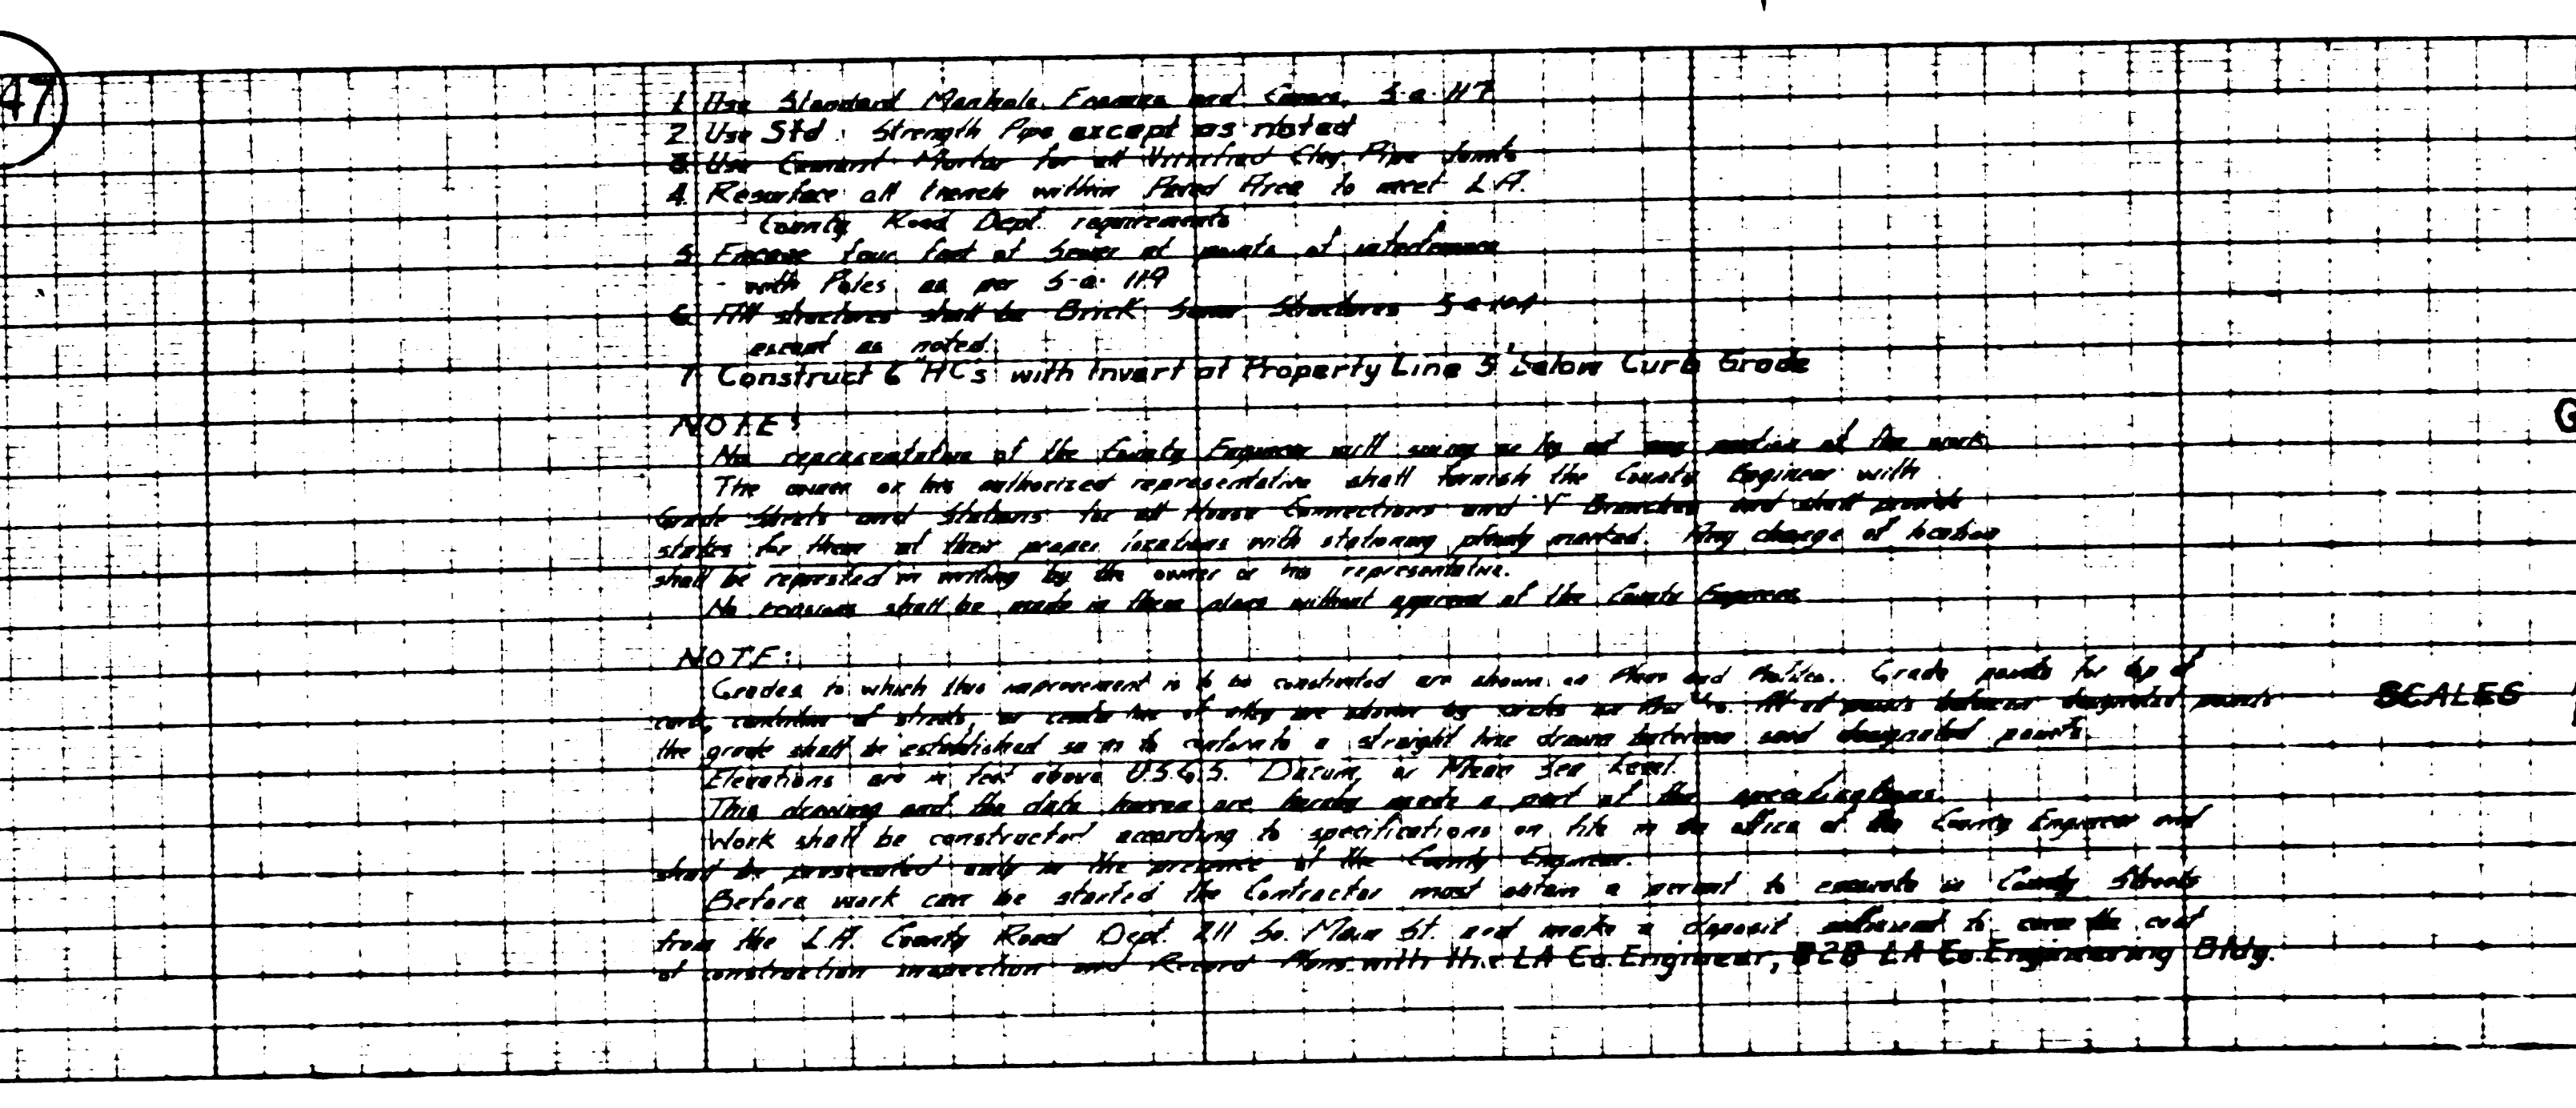 47
1. Use Standard Manhole Frames and Covers, S-a-117
2. Use Std. Strength Pipe except as noted
3. Use Cement Mortar for all Vitrified Clay Pipe Joints
4. Resurface all trench within Paved Area to meet L.A.
County Road Dept. requirements
5. Encase four feet of Sewer at points of interference
with Poles as per S-a-119
6. All structures shall be Brick Sewer Structures S-a-
except as noted.
7. Construct 6" HC's with Invert at Property Line 5' below Curb Grade
NOTE:
No representative of the County Engineer will survey or lay out any portion of the work.
The owner or his authorized representative shall furnish the County Engineer with
Grade Sheets and Stations for all House Connections and Y Branches and shall provide
stakes for them at their proper locations with stationing plainly marked. Any change of location
shall be requested in writing by the owner or his representative.
No revisions shall be made in these plans without approval of the County Engineer.
NOTE:
Grades to which this improvement is to be constructed are shown on Plans and Profiles. Grade points for top of
curb, centerline of streets, or center line of alley are shown by circles on At all points between designated points
the grade shall be established so as to conform to a straight line drawn between said designated points.
SCALES
Elevations are in feet above U.S.G.S. Datum, or Mean Sea Level.
This drawing and the data hereon are hereby made a part of the specifications.
Work shall be constructed according to specifications on file in the office of the County Engineer and
shall be prosecuted only in the presence of the County Engineer.
Before work can be started the Contractor must obtain a permit to excavate in County Streets
from the L.A. County Road Dept. 211 So. Main St. and make a deposit sufficient to cover the cost
of construction inspection and Record Plans with the LA Co. Engineer, LA Co. Engineering Bldg.